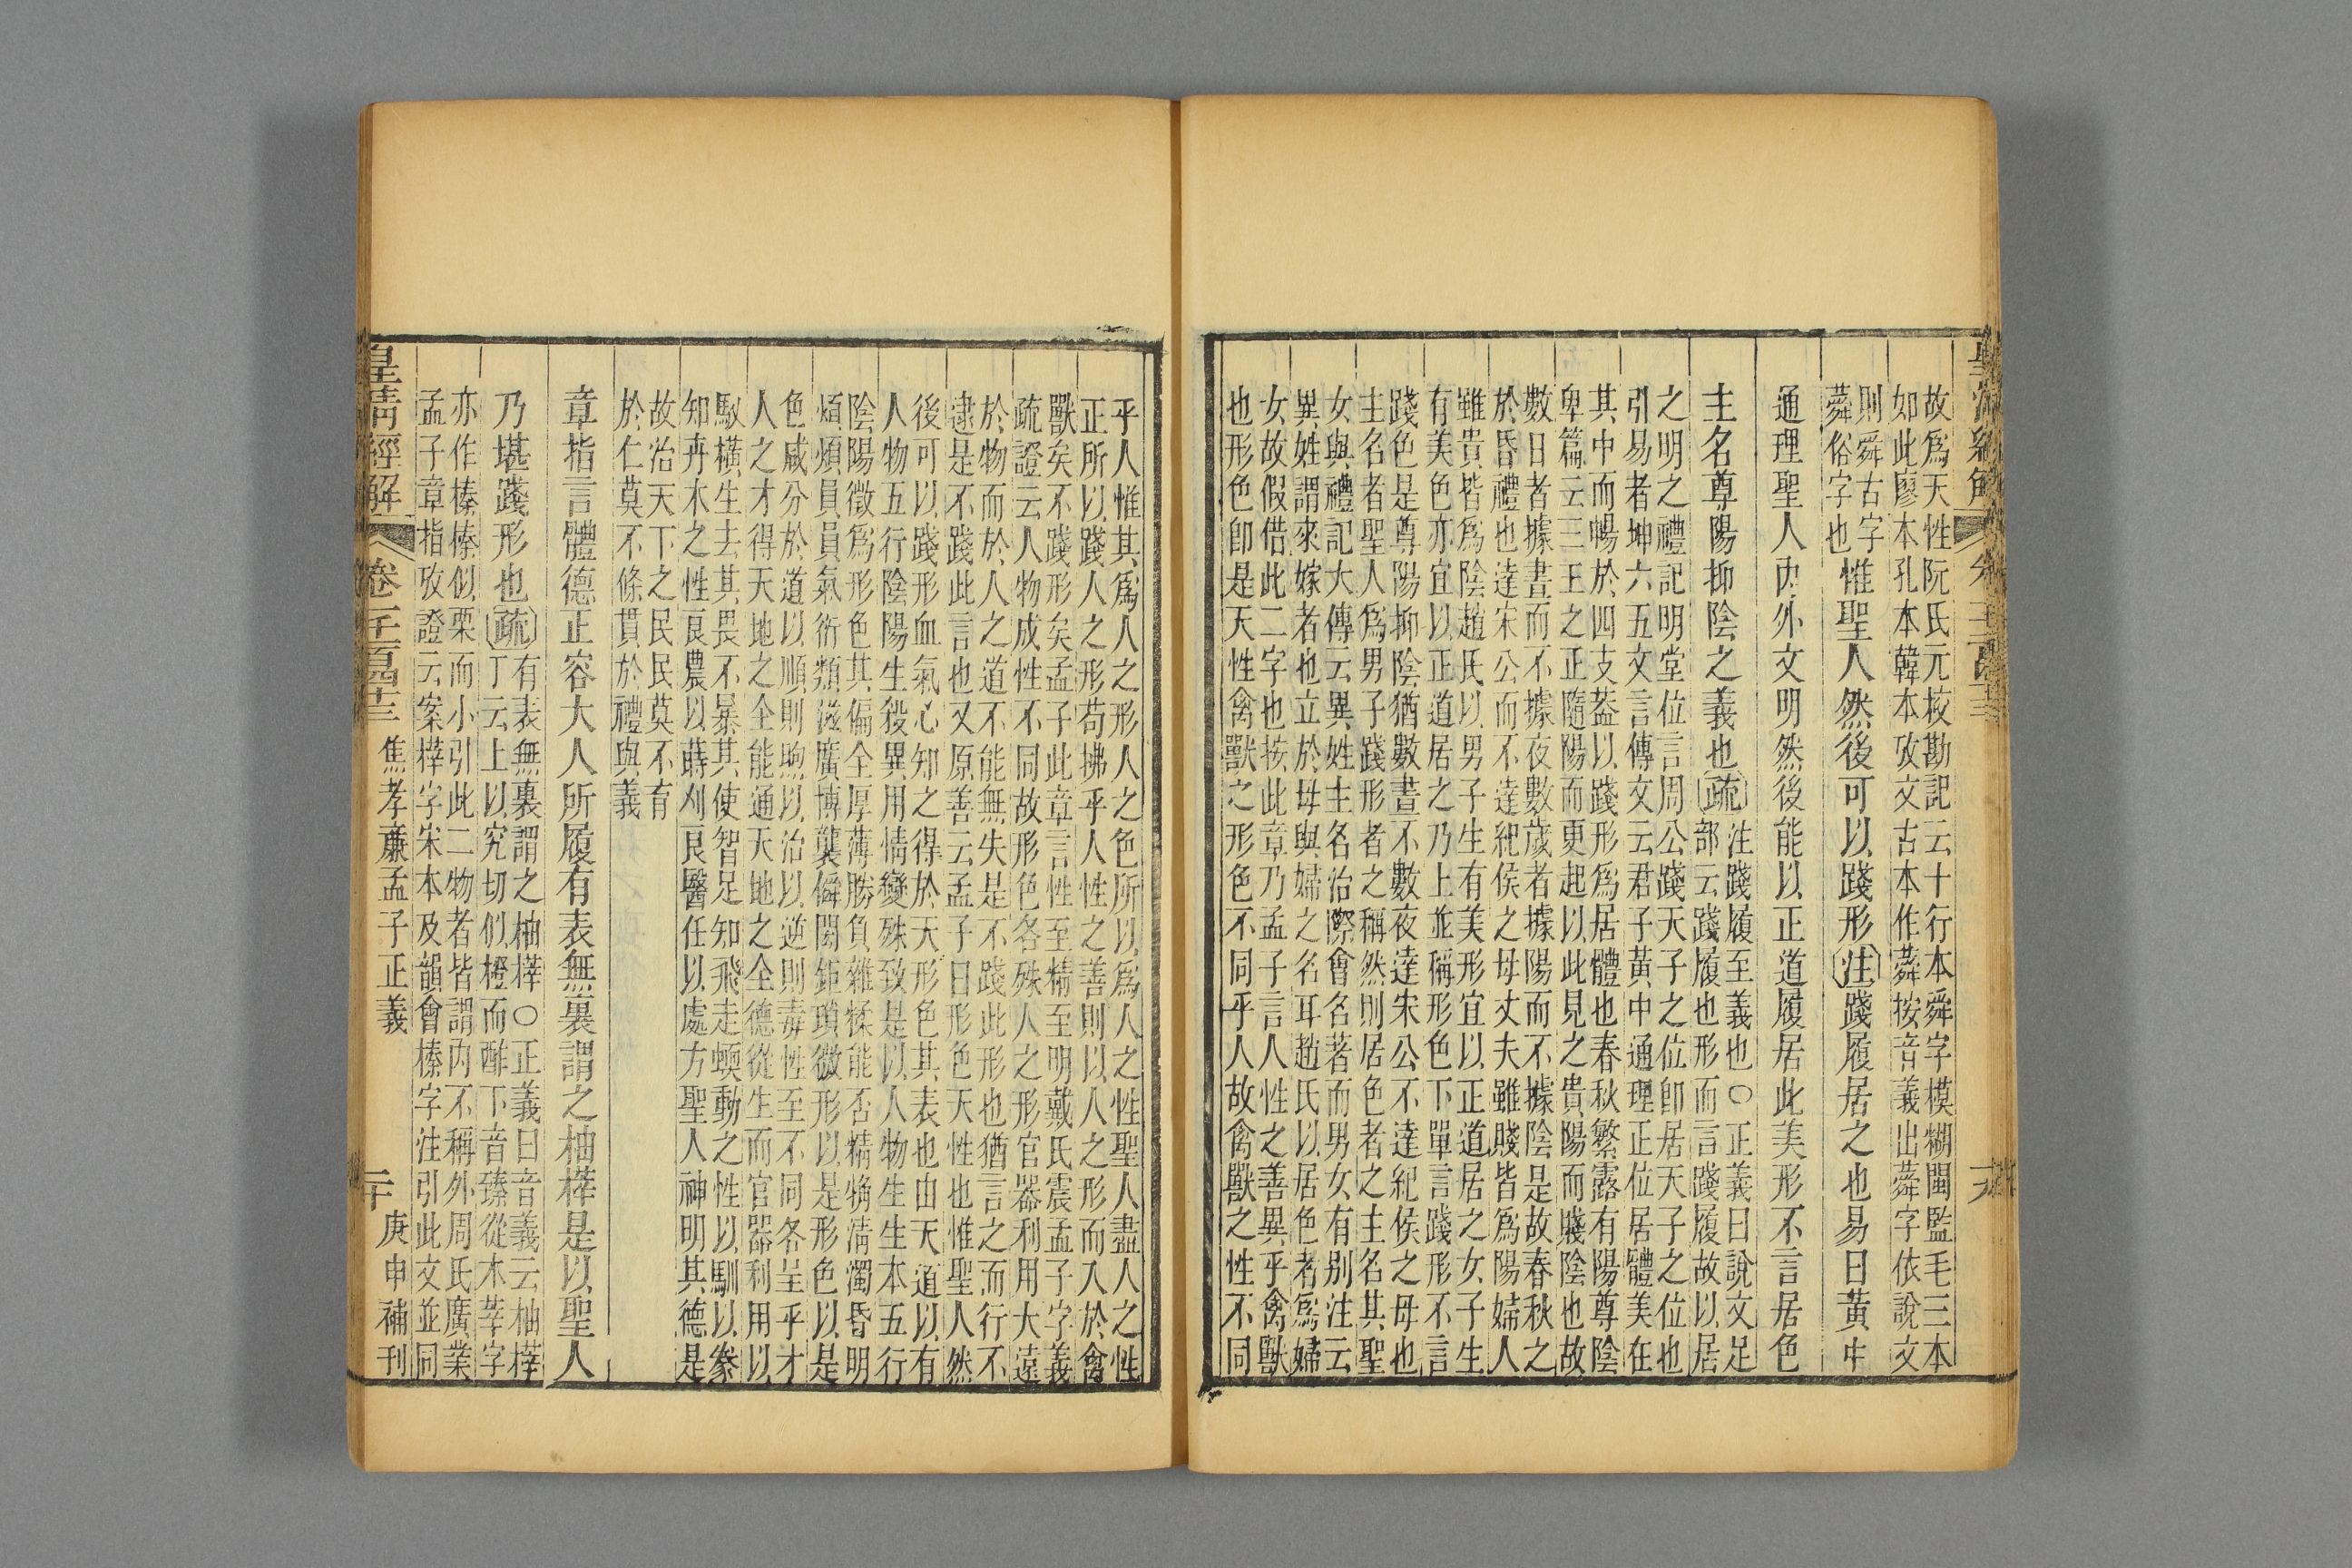 故爲天性阮氏元校勘記云十行本舜字模糊閩監毛三本
如此廖本孔本韓本攷文古本作蕣按音義出蕣字依說文
則舜古字
蕣俗字也
惟聖人然後可以踐形注踐履居之也易曰黃中
通理聖人內外文明然後能以正道履居此美形不言居色
主名尊陽抑陰之義也疏
注踐履至義也○正義曰說文足
部云踐履也形而言踐履故以居
之明之禮記明堂位言周公踐天子之位卽居天子之位也
引易者坤六五文言傳文云君子黃中通理正位居體美在
其中而暢於四支蓋以踐形爲居體也春秋繁露有陽尊陰
卑篇云三王之正隨陽而更起以此見之貴陽而賤陰也故
數日者據晝而不據夜數歲者據陽而不據陰是故春秋之
於昏禮也達宋公而不達紀侯之母丈夫雖賤皆爲陽婦人
雖貴皆爲陰趙氏以男子生有美形宜以正道居之女子生
有美色亦宜以正道居之乃上並稱形色下單言踐形不言
踐色是尊陽抑陰猶數晝不數夜達宋公不達紀侯之母也
主名者聖人爲男子踐形者之稱然則居色者之主名其聖
女與禮記大傳云異姓主名治際會名著而男女有別注云
異姓謂來嫁者也立於母與婦之名耳趙氏以居色者爲婦
女故假借此二字也按此章乃孟子言人性之善異乎禽獸
也形色卽是天性禽獸之形色不同乎人故禽獸之性不同
乎人惟其爲人之形人之色所以爲人之性聖人盡人之性
正所以踐人之形苟拂乎人性之善則以人之形而入於禽
獸矣不踐形矣孟子此章言性至精至明戴氏震孟子字義
疏證云人物成性不同故形色各殊人之形官器利用大遠
於物而於人之道不能無失是不踐此形也猶言之而行不
逮是不踐此言也又原善云孟子曰形色天性也惟聖人然
後可以踐形血氣心知之得於天形色其表也由天道以有
人物五行陰陽生殺異用情變殊致是以人物生生本五行
陰陽徵爲形色其偏全厚薄勝負雜糅能否精觕淸濁昏明
煩煩員員氣衍類滋廣博襲僢閎鉅瑣微形以是形色以是
色咸分於道以順則煦以治以逆則毒性至不同各呈乎才
人之才得天地之全能通天地之全德從生而官器利用以
馭橫生去其畏不暴其使智足知飛走蝡動之性以馴以豢
知卉木之性良農以蒔刈良醫任以處方聖人神明其德是
故治天下之民民莫不有
於仁莫不條貫於禮與義
章指言體德正容大人所履有表無裏謂之柚梓是以聖人
乃堪踐形也疏
有表無裏謂之柚梓○正義曰音義云柚梓
丁云上以究切似橙而酢下音臻從木莘字
亦作榛榛似栗而小引此二物者皆謂內不稱外周氏廣業
孟子章指攷證云案梓字宋本及韻會榛字注引此文並同
皇淸經解 卷一千一百四十三 焦孝廉孟子正義 二十 庚申補刊